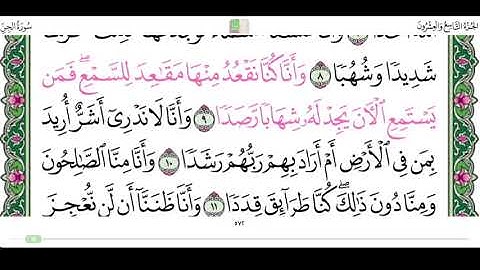 الجزء التاسع والعشرون
سورة الجن
شَدِيدًا وَشُهُبًا ٨ وَأَنَّا كُنَّا نَقْعُدُ مِنْهَا مَقَٰعِدَ لِلسَّمْعِۖ فَمَن
يَسْتَمِعِ ٱلْءَانَ يَجِدْ لَهُۥ شِهَابًا رَّصَدًا ٩ وَأَنَّا لَا نَدْرِىٓ أَشَرٌّ أُرِيدَ
بِمَن فِى ٱلْأَرْضِ أَمْ أَرَادَ بِهِمْ رَبُّهُمْ رَشَدًا ١٠ وَأَنَّا مِنَّا ٱلصَّٰلِحُونَ
وَمِنَّا دُونَ ذَٰلِكَۖ كُنَّا طَرَآئِقَ قِدَدًا ١١ وَأَنَّا ظَنَنَّآ أَن لَّن نُّعْجِزَ
٥٧٢